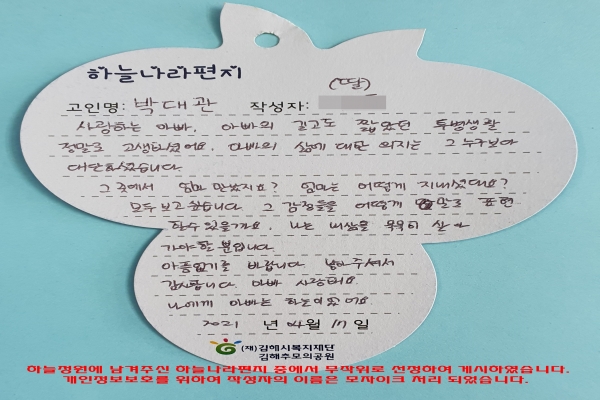 하늘나라편지
(딸)
고인명: 박대관 작성자:
사랑하는 아빠. 아빠의 길고도 짧았던 투병생활
정말로 고생하셨어요. 아빠의 삶에 대한 의지는 그 누구보다
대단하셨습니다.
그 곳에서 엄마 만났지요? 엄마는 어떻게 지내셨대요?
모두 보고싶습니다. 그 감정들을 어떻게 말로 표현
할수 있을까요. 나는 내삶을 묵묵히 살아
가야 할 뿐입니다
아픔없기를 바랍니다 낳아주셔서
감사합니다 아빠 사랑해요
나에게 아빠는 하늘이었어요
2021 년 04월 17일
(재)김해시복지재단
김해추모의공원
하늘정원에 남겨주신 하늘나라편지 중에서 무작위로 선정하여 게시하였습니다.
개인정보보호를 위하여 작성자의 이름은 모자이크 처리 되었습니다.